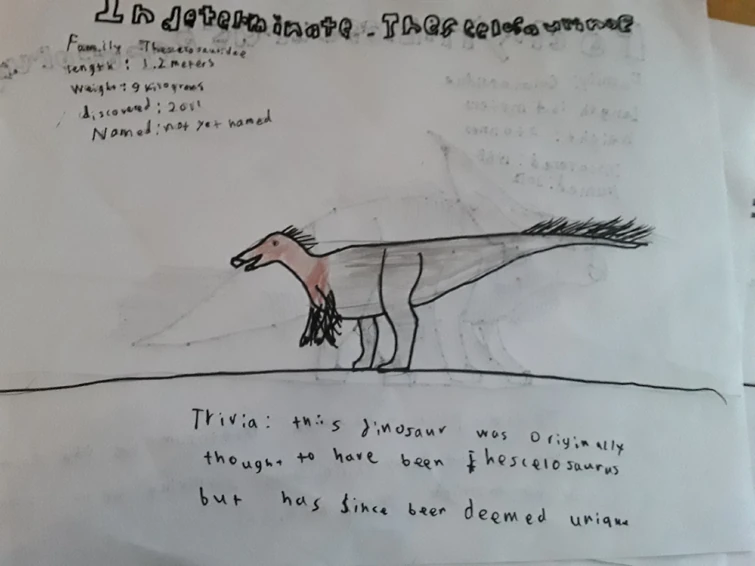 Indeterminate Thescelosaurine
Family Thescelosauridae
length: 1.2 meters
weight: 9 kilogrems
discovered: 2011
Named: not yet named
Trivia: this dinosaur was originally
thought to have been Thescelosaurus
but has since been deemed unique